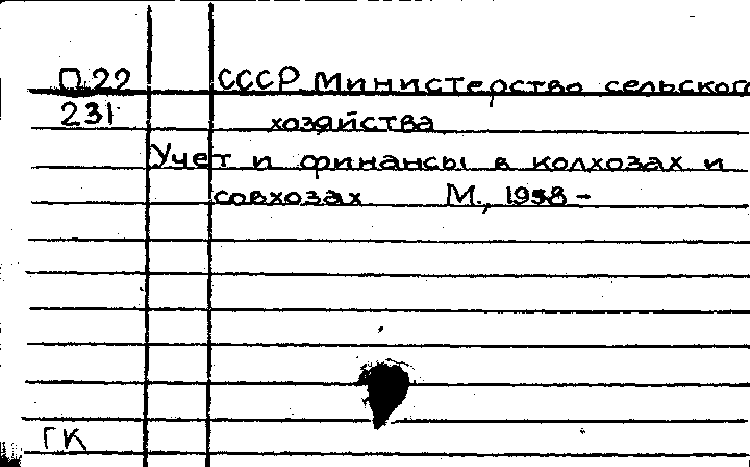 П 22 СССР Министерство сельского
231 хозяйства
Учет и финансы в колхозах и
совхозах М., 1958 -
ГК